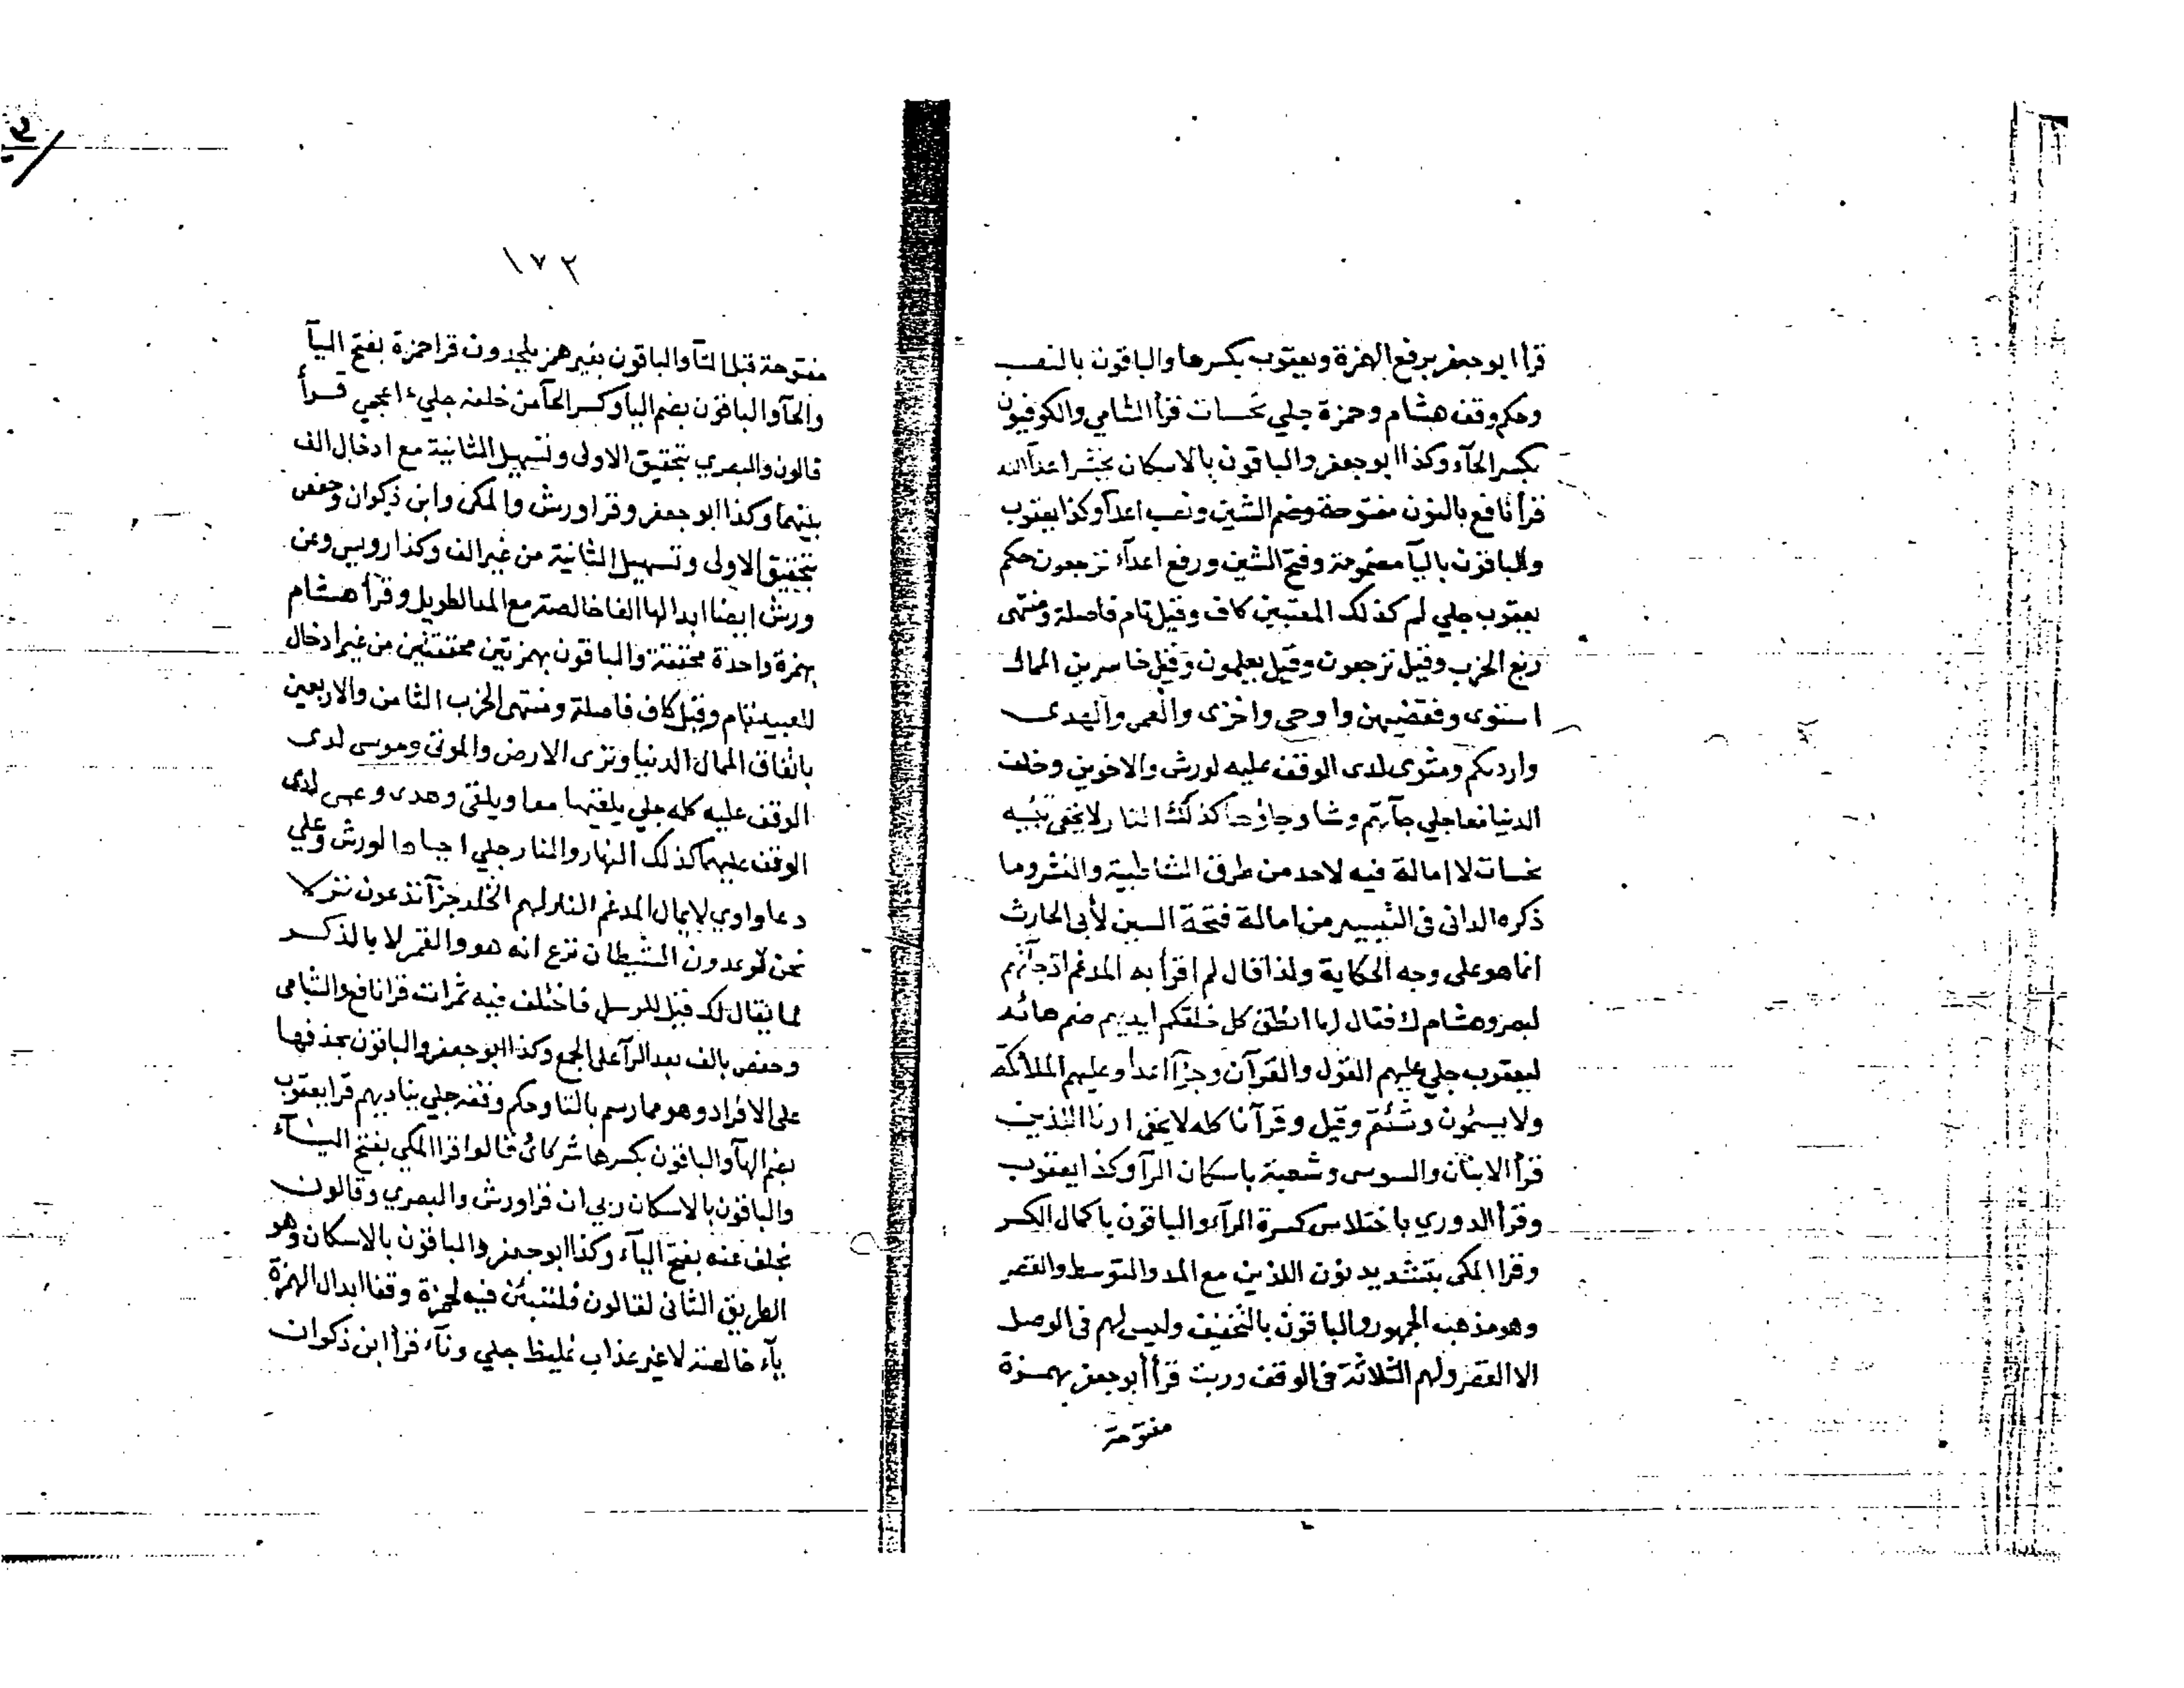 قرأ ابو جعفر برفع الهمزة ويعقوب بكسرها والباقون بالنصب
وحكم وقف هشام وحمزة جلي نحسات قرأ الشامي والكوفيون
بكسر الحآء وكذا ابو جعفر والباقون بالاسكان يحشر اعدآ الله
قرأ نافع بالنون مفتوحة وضم الشين ونصب اعدآ وكذا يعقوب
والباقون باليآ مضمومة وفتح الشين ورفع اعدآء ترجعون حكم
يعقوب جلي لم كذلك المعتبين كاف وقيل تام فاصلة ومنتهى
ربع الحزب وقيل ترجعون وقيل يعلمون وقيل خاسرين الممال
استوى وفقضيهن واوحى واخزى والعمى والهدى
وارديكم ومثوى لدى الوقف عليه لورش والاخوين وخلف
الدنيا معا جلي جآءتهم وشا وجاؤها كذلك النار لا يخفى تنبيه
نحسات لا امالة فيه لاحد من طرق الشاطبية والنشر وما
ذكره الدانى فى التيسير من امالة فتحة السين لأبى الحارث
انما هو على وجه الحكاية ولذا قال لم اقرأ به المدغم اذ جآءتهم
لبصر وهشام ك فقال لها انطق كل خلقكم ايديهم ضم هائه
ليعقوب جلي عليهم القول والقرآن وجزآ اعدا وعليهم الملائكة
ولا يسئمون وشئتم وقيل وقرآنا كله لا يخفى ارنا اللذين
قرأ الابنان والسوسى وشعبة باسكان الرآ وكذا يعقوب
وقرأ الدوري باختلاس كسرة الرآء والباقون باكمال الكسر
وقرا المكى بتشديد نون اللذين مع المد والتوسط والقصر
وهو مذهب الجمهور والباقون بالتخفيف وليس لهم فى الوصل
الا القصر ولهم الثلاثة فى الوقف وربت قرأ أبو جعفر بهمزة
مفتوحة
١٧٢
مفتوحة قبل التآ والباقون بغير همز يلحدون قرا حمزة بفتح اليآ
والحآ والباقون بضم اليآ وكسر الحآ من خلفه جليء اعجمي قرأ
قالون والبصري بتحقيق الاولى وتسهيل الثانية مع ادخال الف
بينهما وكذا ابو جعفر وقرا ورش والمكى وابن ذكوان وحفص
بتحقيق الاولى وتسهيل الثانية من غير الف وكذا رويس وعن
ورش ايضا ابدالها الفا خالصة مع المد الطويل وقرأ هشام
بهمزة واحدة محققة والباقون بهمزتين محققتين من غير ادخال
للعبيد تام وقيل كاف فاصلة ومنتهى الحزب الثامن والاربعين
باتفاق الممال الدنيا وترى الارض والموتى وموسى لدى
الوقف عليه كله جلي يلقيها معا ويلقى وهدى وعمى لدى
الوقف عليهما كذلك النهار والنار جلي احياها لورش وعلي
دعا واوي لا يمال المدغم النار لهم الخلد جزآ تدعون نزلا
نحن توعدون الشيطان نزع انه هو والقمر لا بالذكر
لما يقال لك قيل للرسل فاختلف فيه ثمرات قرا نافع والشامى
وحفص بالف بعد الرآ على الجمع وكذا ابو جعفر والباقون بحذفها
على الافراد وهو مما رسم بالتا وحكم وقفه جلي يناديهم قرا يعقوب
بضم الهآ والباقون بكسرها شركائى قالوا قرا المكي بفتح اليآء
والباقون بالاسكان ربي ان قرا ورش والبصري وقالون
بخلف عنه بفتح اليآء وكذا ابو جعفر والباقون بالاسكان وهو
الطريق الثانى لقالون فلننبئن فيه لحمزة وقفا ابدال الهمزة
يآء خالصة لا غير عذاب غليظ جلي ونآء قرأ ابن ذكوان